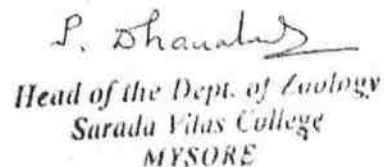 Head of the Dept. of Zoology
Sarada Vilas College
MYSORE